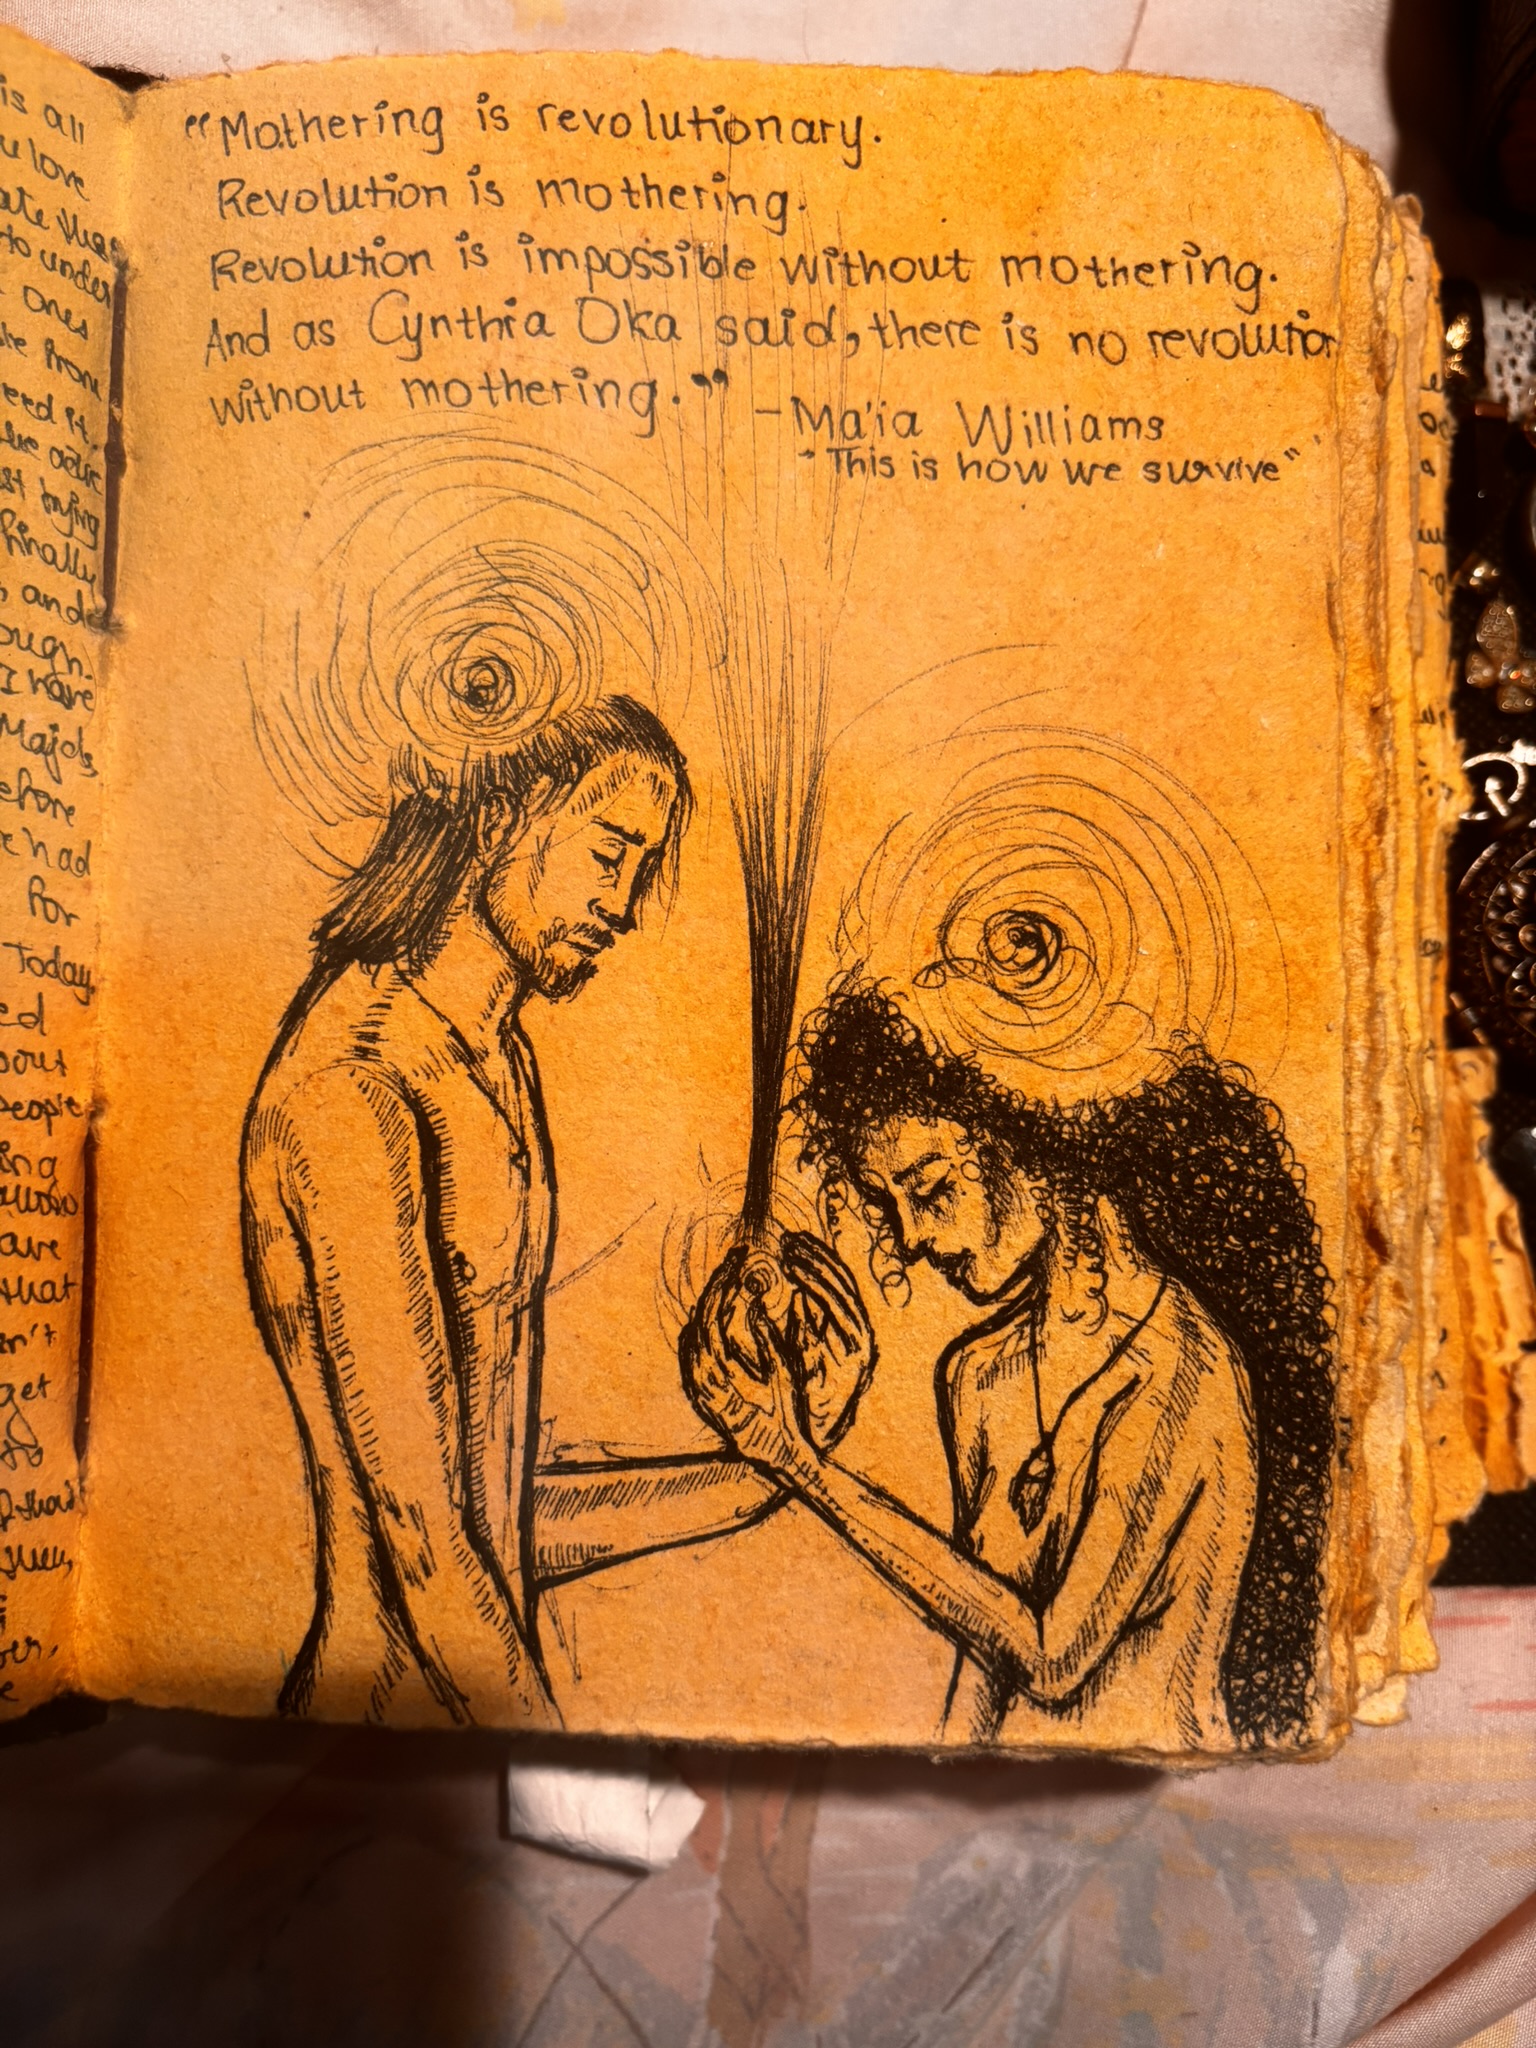 is all
love
to under
ones
from
need it.
finally
and
ough.
I have
Majds,
before
had
for
Today,
ed
bout
people
ing
are
that
n't
get
"Mothering is revolutionary.
Revolution is mothering.
Revolution is impossible without mothering.
And as Cynthia Oka said, there is no revolution
without mothering."
-Ma'ia Williams
"This is how we survive"